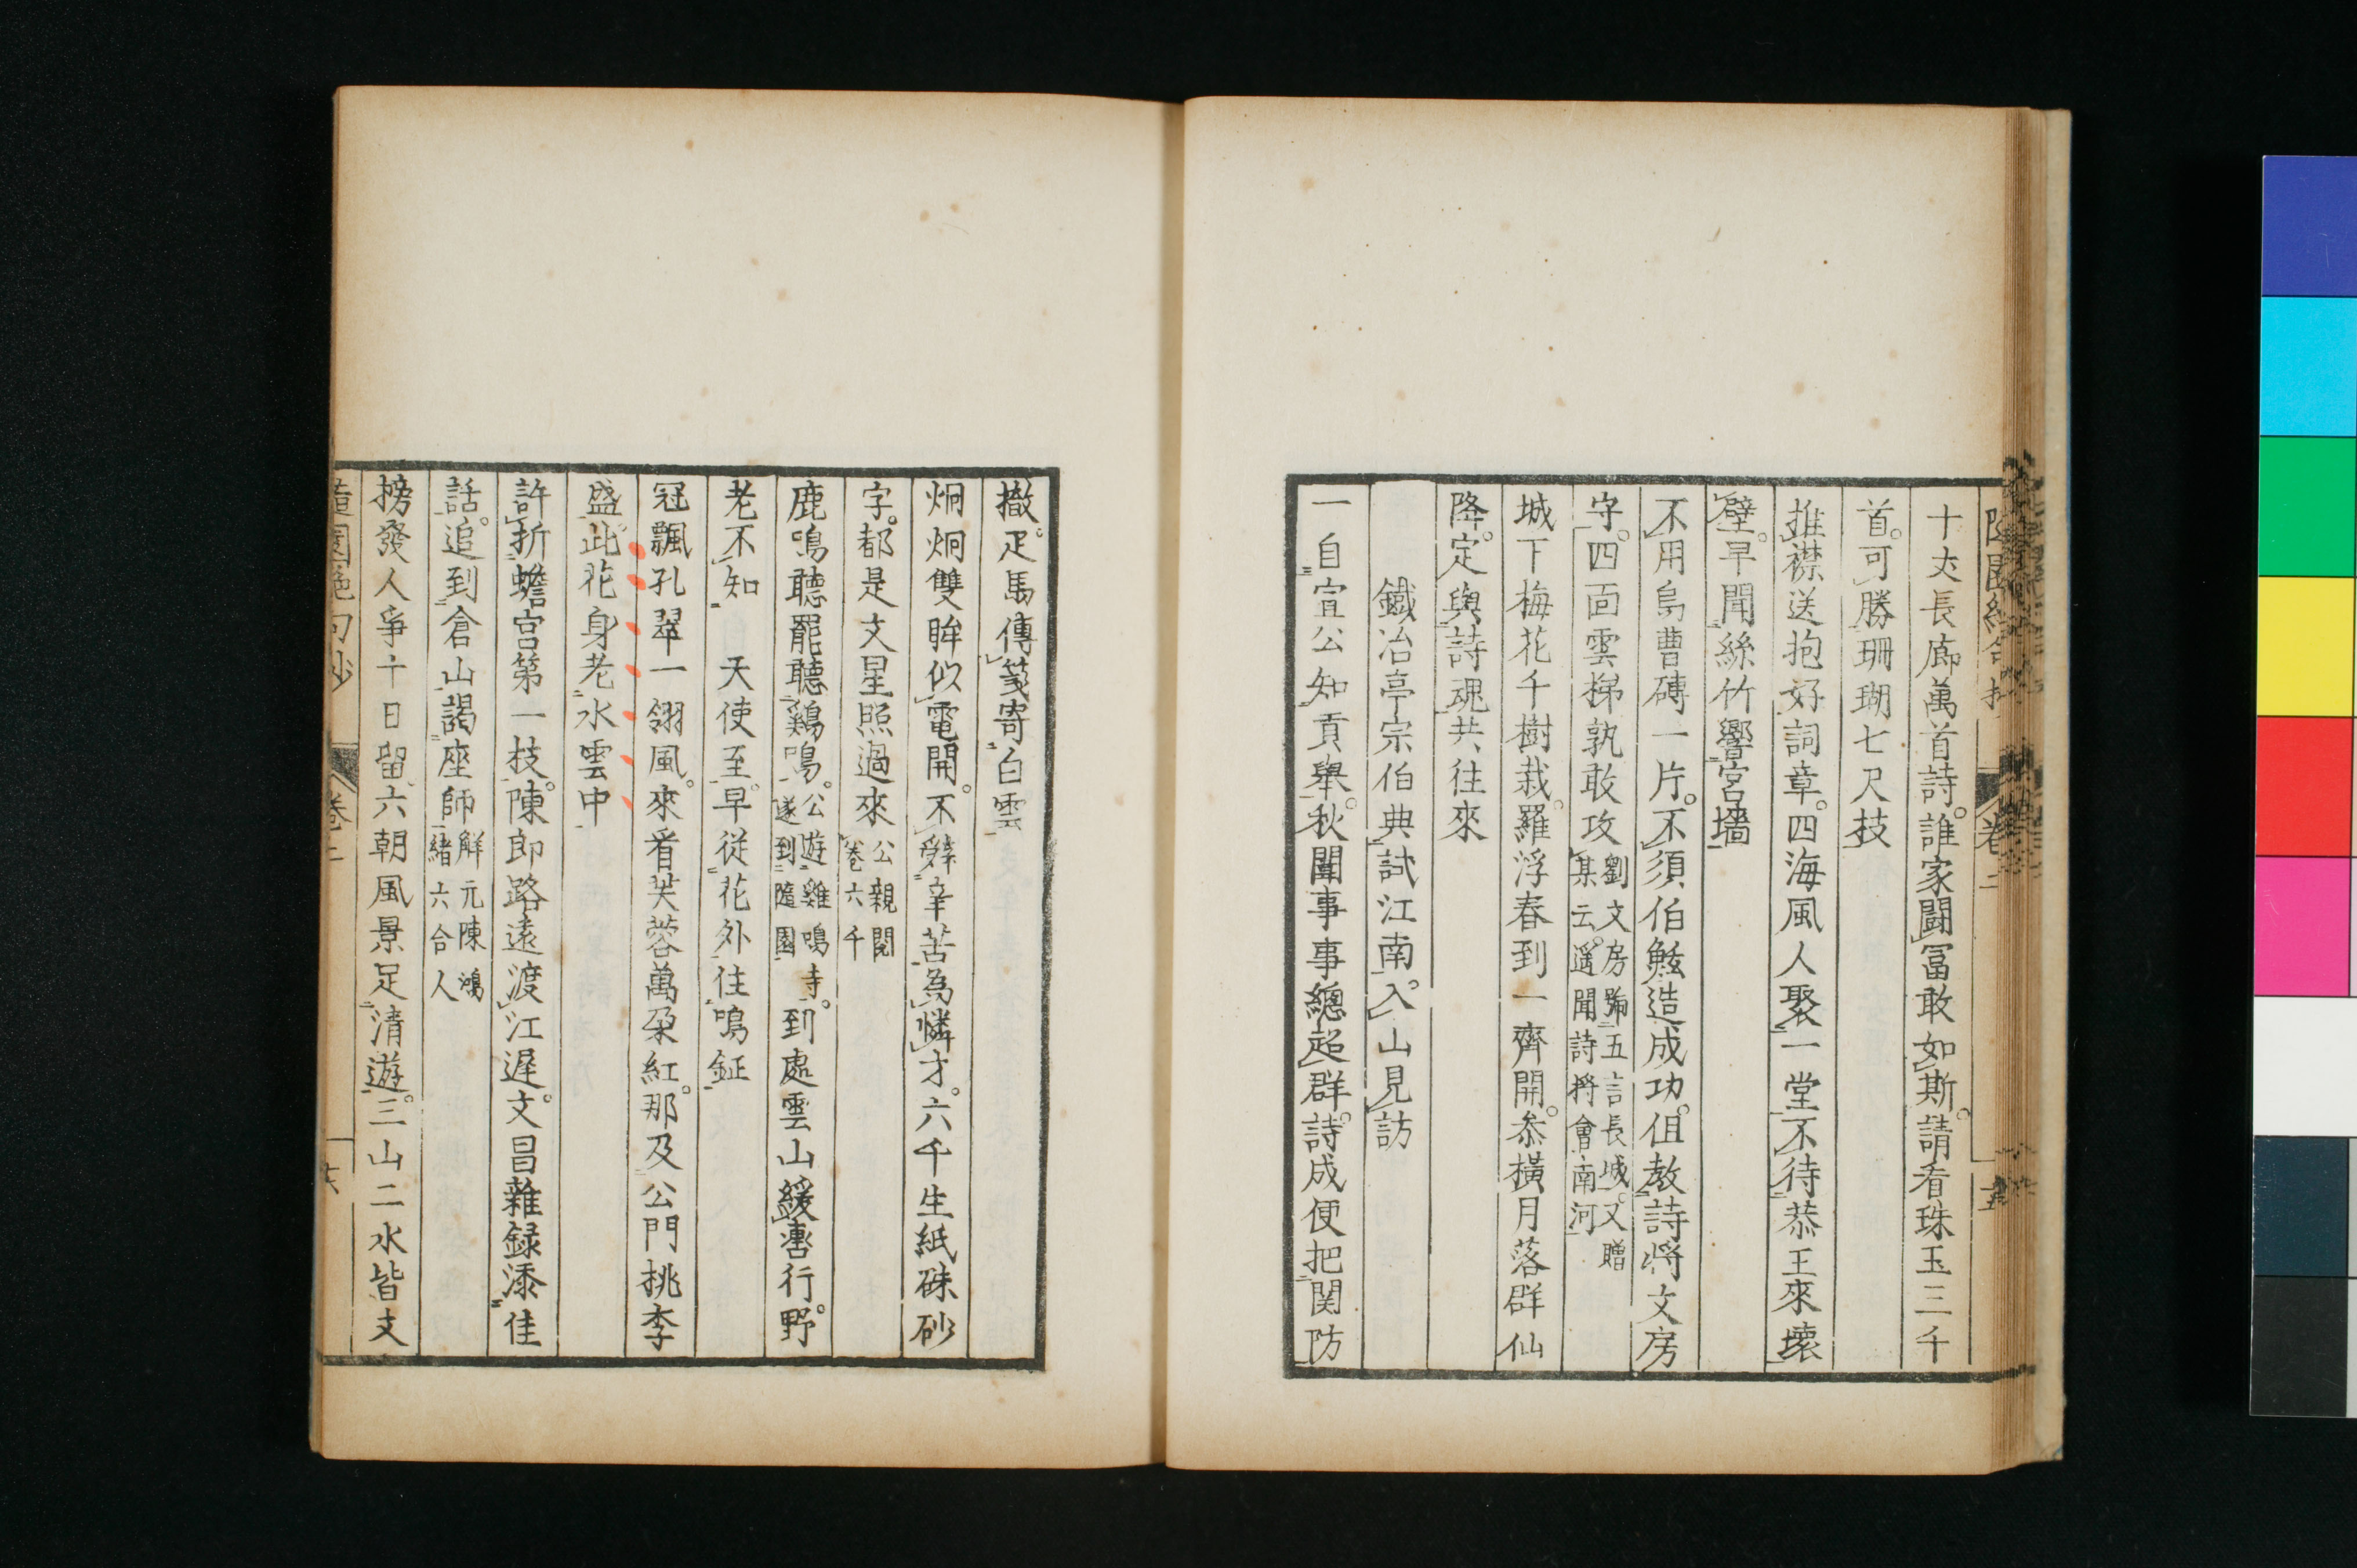 隨園絕句抄 卷二
十丈長廊萬首詩。誰家鬪冨敢如斯。請看珠玉三千
首。可勝珊瑚七尺技
推襟送抱好詞章。四海風人聚一堂不待恭王來壞
壁。早聞絲竹響宮墻
不用烏曹磚一片。不須伯鮌造成功。但教詩將文房
守。四面雲梯孰敢攻 劉文房號五言長城。又贈某云。遥聞詩將會南河
城下梅花千樹栽。羅浮春到一齊開。叅橫月落群仙
降。定與詩魂共往來
鐵冶亭宗伯典試江南。入山見訪
一自宣公知貢舉。秋闈事事總超群。詩成便把関防
撤。疋馬傳箋寄白雲
炯炯雙眸似電開。不辤辛苦為憐才。六千生紙硃砂
字。都是文星照過來 公親閱卷六千
鹿鳴聽罷聽鷄鳴。公遊雞鳴寺。遂到隨園 到處雲山緩轡行。野
老不知天使至。早從花外住鳴鉦
冠飄孔翠一翎風。來看芙蓉萬朶紅。那及公門桃李
盛。此花身老水雲中
許折蟾宮第一枝。陳郎路遠渡江遲。文昌雜録添佳
話。追到倉山謁座師 解元陳鴻緒六合人
榜發人爭十日留。六朝風景足清遊。三山二水皆支
隨園絕句抄 卷二